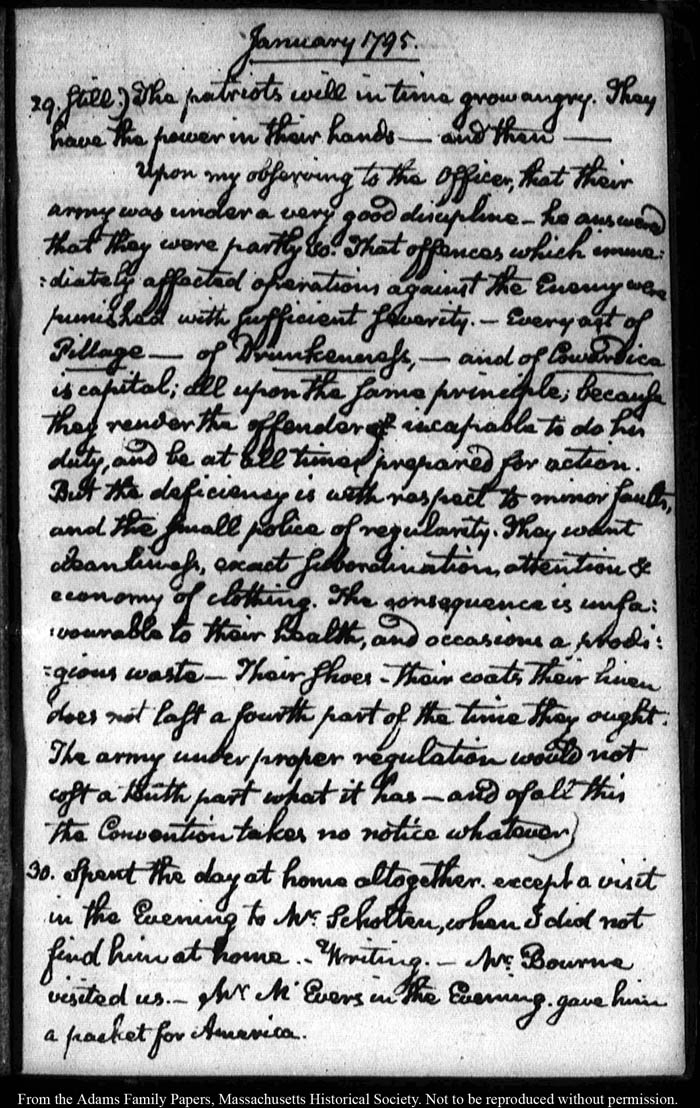 January 1795.
29. Still.) The patriots will in time grow angry. They
have the power in their hands — and then —
Upon my observing to the Officer, that their
army was under a very good discipline – he answered
that they were partly so. That offences which imme:
:diately affected operations against the Enemy were
punished with sufficient severity. — Every act of
Pillage — of Drunkenness, — and of Cowardice
is capital; all upon the same principle; because
they render the offender incapable to do his
duty, and be at all times prepared for action.
But the deficiency is with respect to minor faults,
and the small police of regularity. They want
cleanliness, exact subordination, attention &
economy of clothing. The consequence is unfa:
:vourable to their health, and occasions a prodi:
:gious waste — Their shoes - their coats their linen
does not last a fourth part of the time they ought.
The army under proper regulation would not
cost a tenth part what it has — and of all this
the Convention takes no notice whatever)
30. Spent the day at home altogether. except a visit
in the Evening to Mr. Scholten, when I did not
find him at home. - Writing. — Mr. Bourne
visited us. — Mr. McEvers in the Evening. gave him
a packet for America.
From the Adams Family Papers, Massachusetts Historical Society. Not to be reproduced without permission.